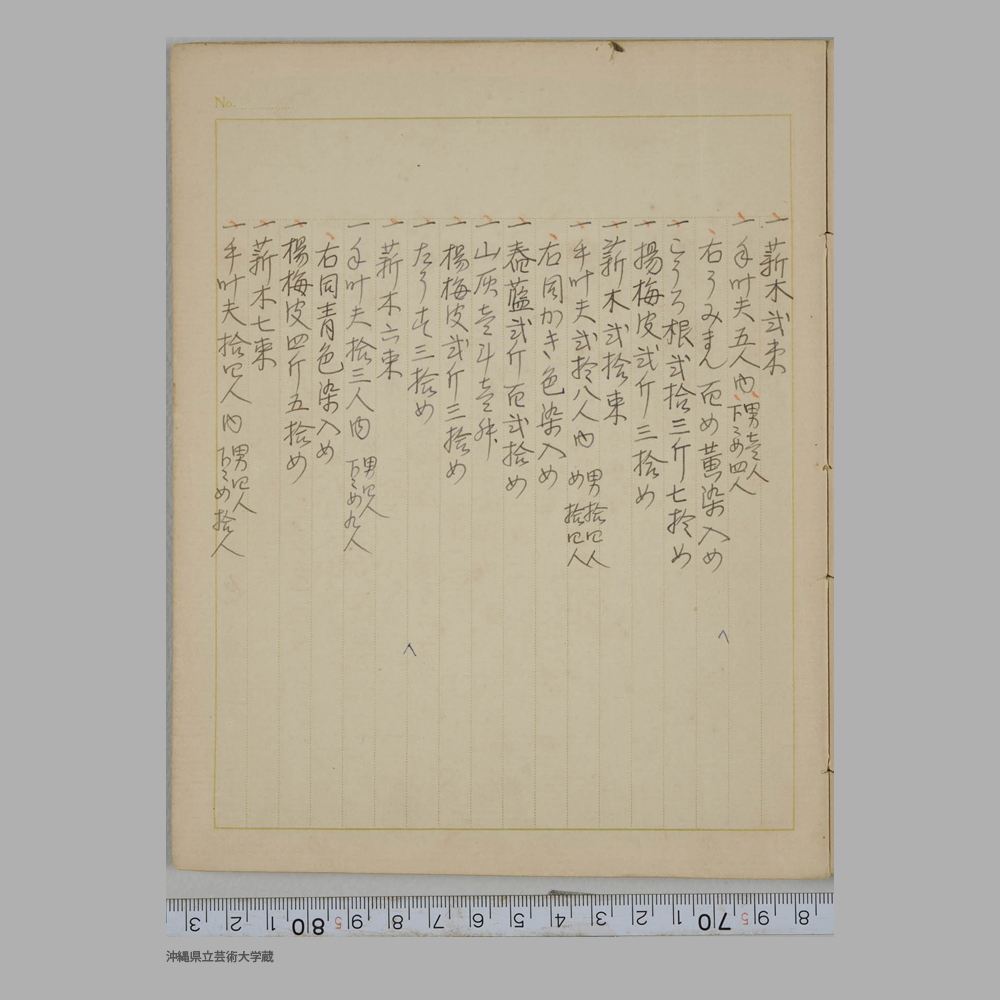 No.
一 薪木弐束
一 手叶夫五人内 男壱人 下ミめ四人
右うみまん 百め黄染入め
一 こうろ根弐拾三斤七拾め
一 楊梅皮弐斤三拾め
一 薪木弐拾束
一 手叶夫弐拾八人内 男拾四人 め拾四人
右同かき色染入め
一 泰藍弐斤百弐拾め
一 山灰壱斗壱舛
一 楊梅皮弐斤三拾め
一 たうす三拾め
一 薪木六束
一 手叶夫拾三人内 男四人 下ミめ九人
右同青色染入め
一 楊梅皮四斤五拾め
一 薪木七束
一 手叶夫拾四人内 男四人 下ミめ拾人
沖縄県立芸術大学蔵